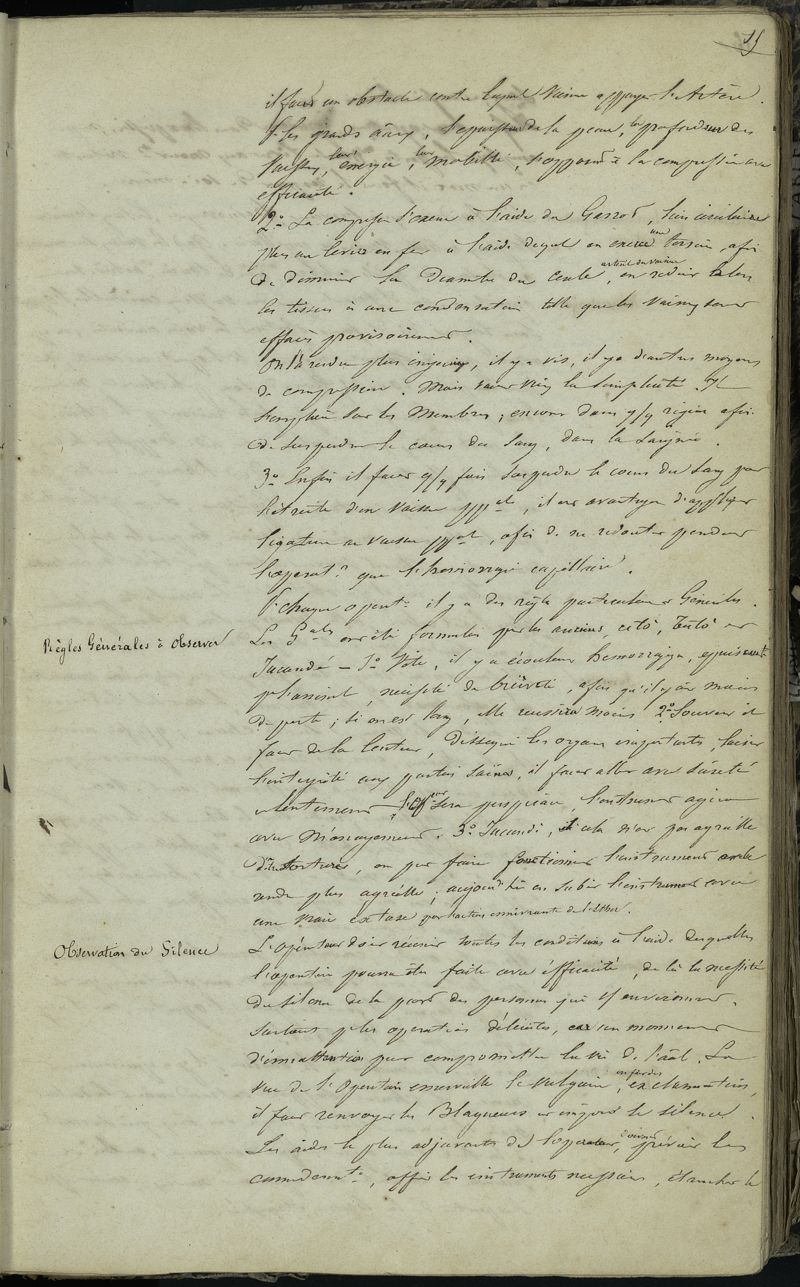 15
il faut un obstacle contre lequel vienne appuyer l'Artère.
les grands âges, l'épaisseur de la peau, la profondeur des
leur énergie, leur mobilité, s'opposent à la compression avec
efficacité.
2° La compression s'exerce à l'aide du Garrot, lien circulaire
plus un levier en fer à l'aide duquel on exerce une torsion, afin
de diminuer le Diamètre du cercle, en réduire alors
les tissus à une condensation telle que les vaisseaux sont
effacés provisoirement.
On l'a rendu plus ingénieux, il y a vis, il y a d'autres moyens
de compression. Mais la simplicité. Il
s'emploie sur les Membres, encore dans q/q région afin
de suspendre le cours du sang, dans la Saignée.
3° Enfin il faut q/q fois suspendre le cours du sang par
d'un vaisseau ppal, il est avantageux d'appliquer
ligature au vaisseau ppal, afin de ne redouter pendant
l'opérat.n que l'hémorragie capillaire.
chaque opérat.n il y a des règles particulières Générales.
Règles Générales à Observer
Les G.ales ont été formulées par les anciens, citò, Tutò et
Jucundè — 1° Vite, il y a écouleur hémorragique,
nécessité de brièveté, afin qu'il y ait moins
de perte; si on est long, elle réussira moins 2° Souvent il
faut de la lenteur, Disséquer les organes importants, laisser
l'intégrité aux parties saines, il faut aller avec sûreté
et lentement l'instrument agira
avec Ménagement. 3° Jucundè, cela n'est pas agréable
d'être torturé, on peut faire fonctionner l'instrument
rendre plus agréable; aujourd'hui on subit l'instrument avec
une vraie extase par l'action enivrante de l'éther.
Observation du Silence
L'opérateur doit réunir toutes les conditions à l'aide desquelles
l'opération pourra être faite avec efficacité, de là la nécessité
du silence de la part des personnes qui l'environnent,
surtout p. les opérations délicates, car un moment
d'inattention peut compromettre la vie de l'opéré. La
vue de l'Opération émerveille le vulgaire, exclamations,
il faut renvoyer les Blagueurs et imposer le silence.
Les aides le plus adjuvants de l'opérateur, doivent prévoir les
offrir les instruments nécessaires, étancher le